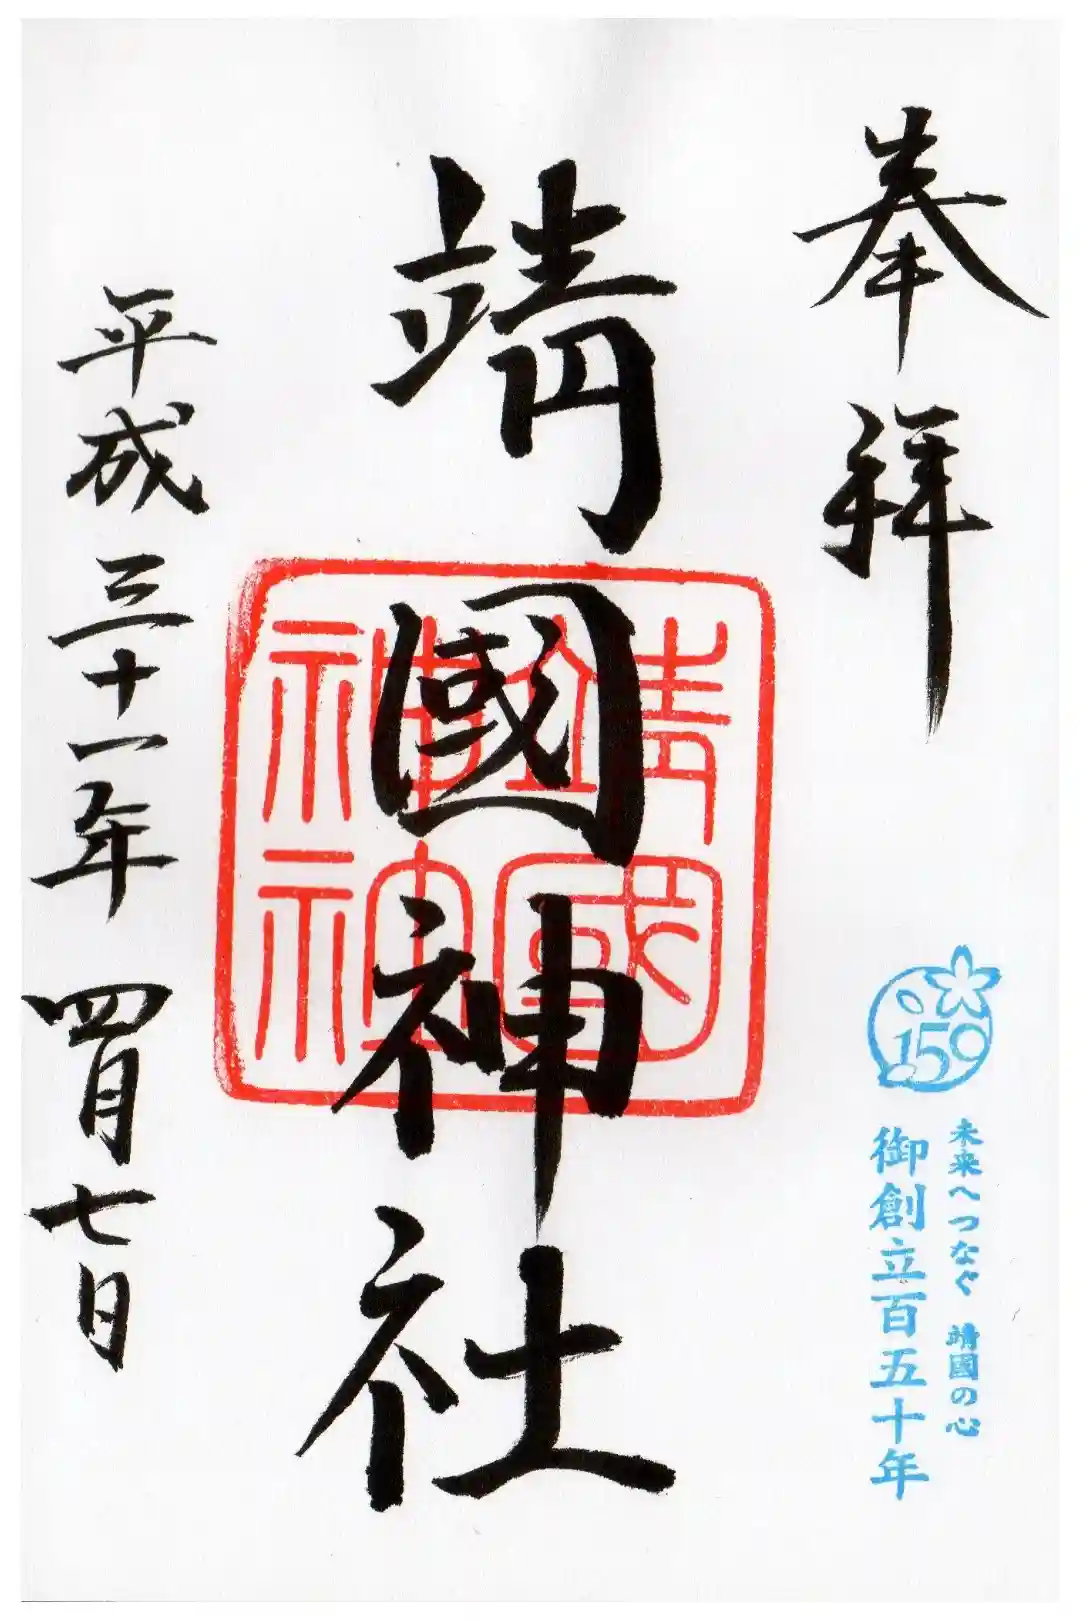 奉拝
159
未来へつなぐ 靖國の心
御創立百五十年
靖國神社
靖國神社
平成三十一年 四月七日